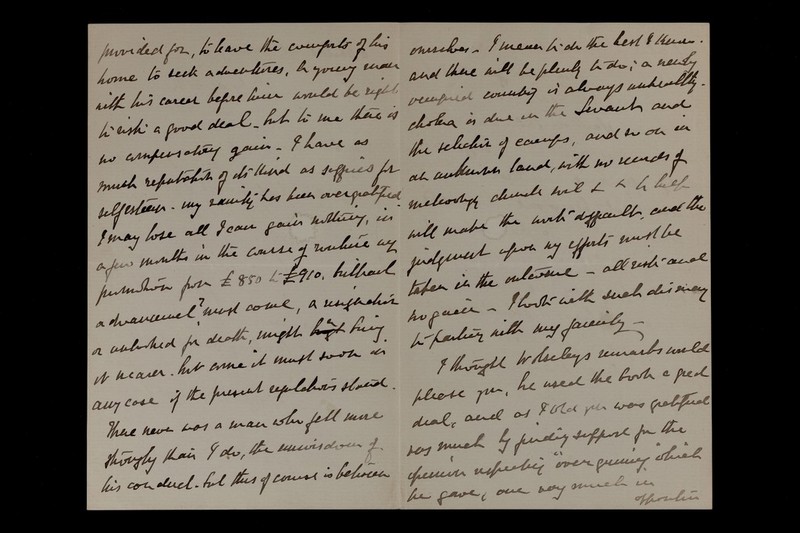 provided for, to leave the comforts of his
home to seek adventures, a young man
with his career before him would be right
to risk a good deal - but to me there is
no compensatory gain - I have as
much reputation of its kind as suffices for
selfesteem - my vanity has been overgratified
I may lose all I can gain nothing, in
a few months in the course of routine my
promotion from £850 to £910, without
advancement must come, a resignation
or unlooked for death, might bring
it nearer. but come it must soon in
any case if the present regulations stand.
There never was a man who felt more
strongly than I do, the unwisdom of
his conduct - but this of course is between
ourselves - I mean to do the best I know.
and there will be plenty to do; a newly
occupied country is always unhealthy -
cholera is due in the Levant and
the selection of camps, and so on in
an unknown land, with no records of
meteorology to help
will make the work difficult, and the
judgment upon my efforts must be
taken in the outcome - all risk and
no gain - I look with such dismay
to parting with my family -
I thought Wolseleys remarks would
please you, he used the book a good
deal, and as I told you was gratified
very much by finding support for the
opinion respecting "overgraining" which
he gave, one very much in
opposition